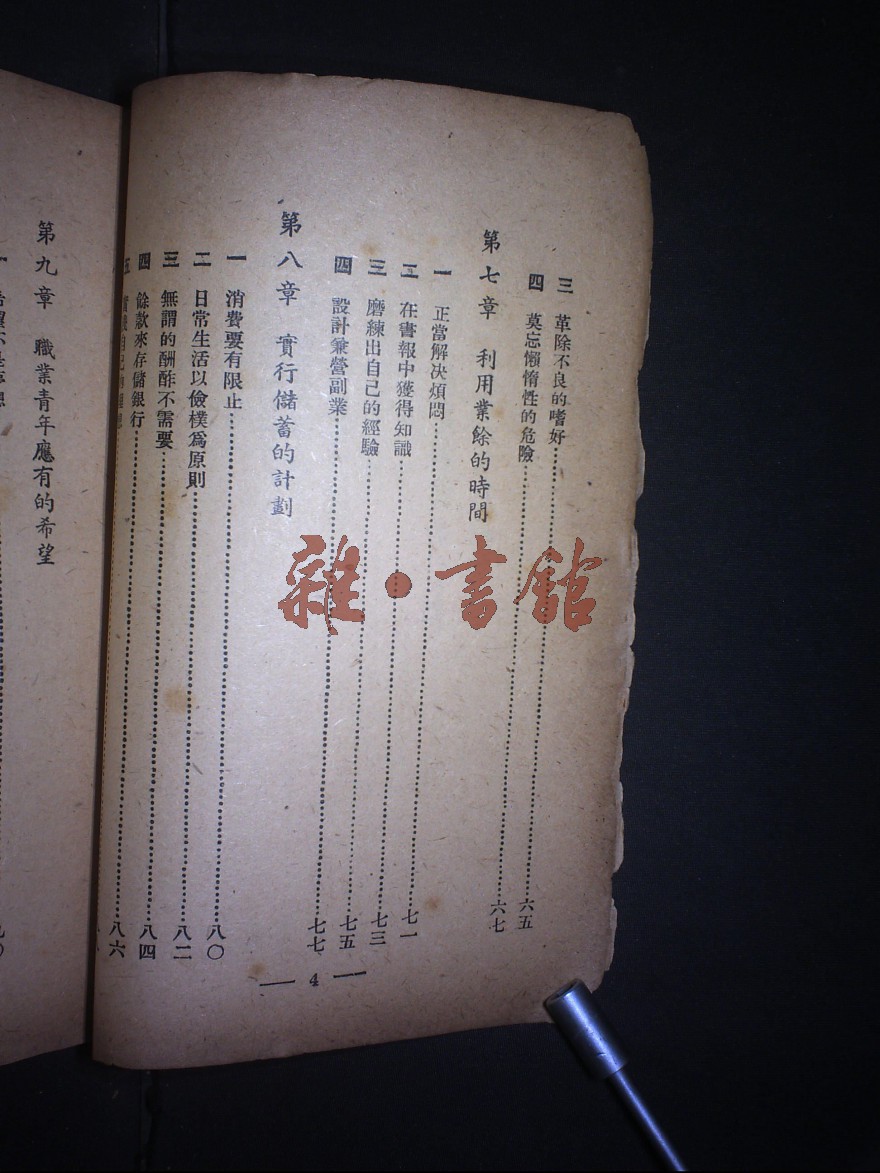 三 革除不良的嗜好……六五
四 莫忘懶惰性的危險……六七
第七章 利用業餘的時間
一 正當解决煩悶……七一
二 在書報中獲得知識……七三
三 磨練出自己的經驗……七五
四 設計兼營副業……七七
第八章 實行儲蓄的計劃
一 消費要有限止……八〇
二 日常生活以儉樸爲原則……八二
三 無謂的酬酢不需要……八四
四 餘款來存儲銀行……八六
五 自己的
— 4 —
第九章 職業青年應有的希望
一 希望不是……九〇
雜·書館